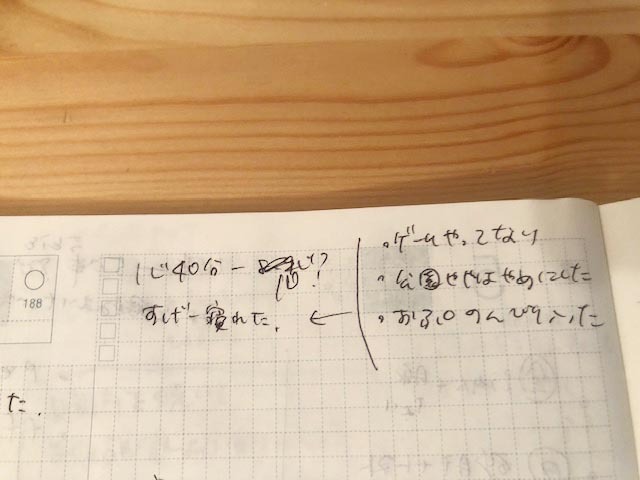 188
1じ40分ー
すげー寝れた. ←
・ゲームやってない
・公園 はやめにした
・おふろのんびり入った
た.